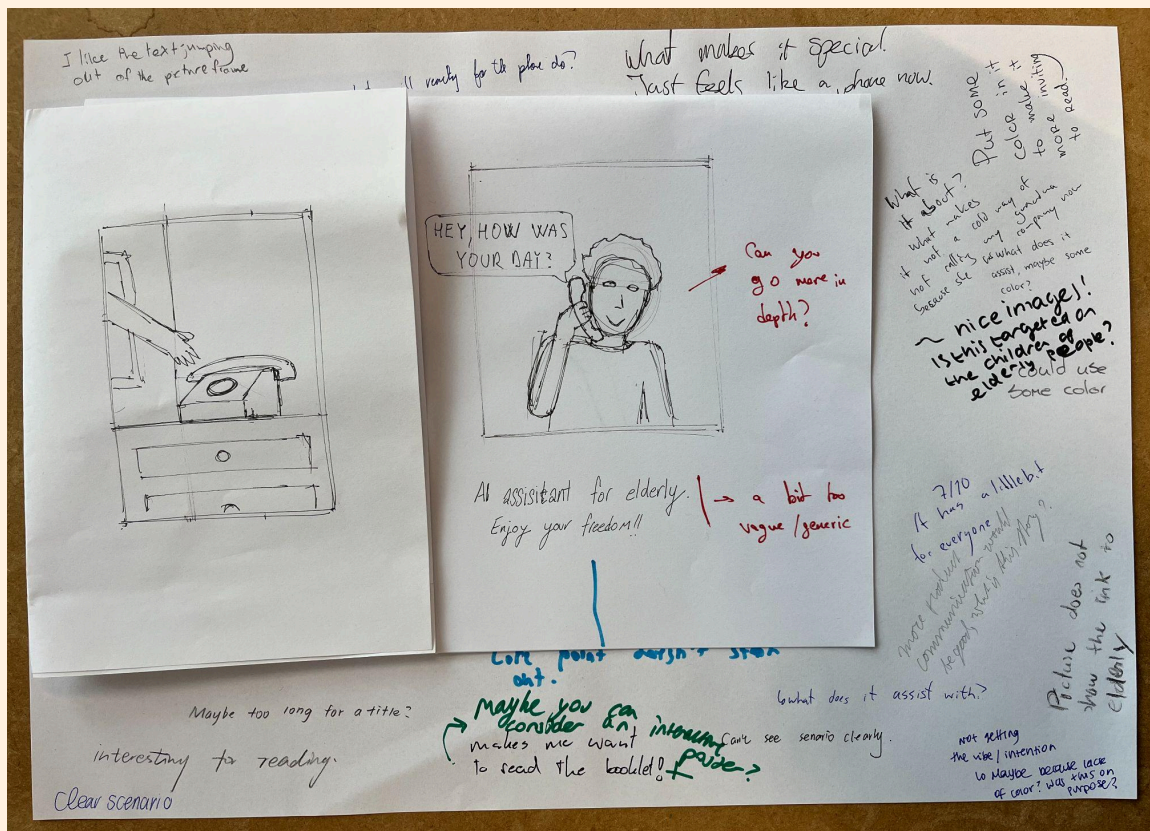 I like the text jumping
out of the picture frame
really for the phone do?
What makes it special.
Just feels like a phone now.
Put some
color in it
to make it
more inviting
to read.
What is
it about?
What makes
it not a cold way of
not calling my grandma
because she has company now
what does it
assist, maybe some
color?
~ nice images!
Is this targeted on
the children of
elderly people?
could use
some color
HEY, HOW WAS
YOUR DAY?
Can you
go more in
depth?
AI assisitant for elderly.
Enjoy your freedom!!
→ a bit too
vague/generic
7/10
It has a little bit
for everyone
more product
communication would
be good, what's this thing?
Picture does not
show the link to
elderly
Core point doesn't
out.
Maybe too long for a title?
interesting for reading.
Clear scenario
Maybe you can
consider an
makes me want
to read the booklet!
what does it assist with?
Can't see senario clearly.
Not getting
the vibe/intention
Maybe because lack
of color? was this on
purpose?